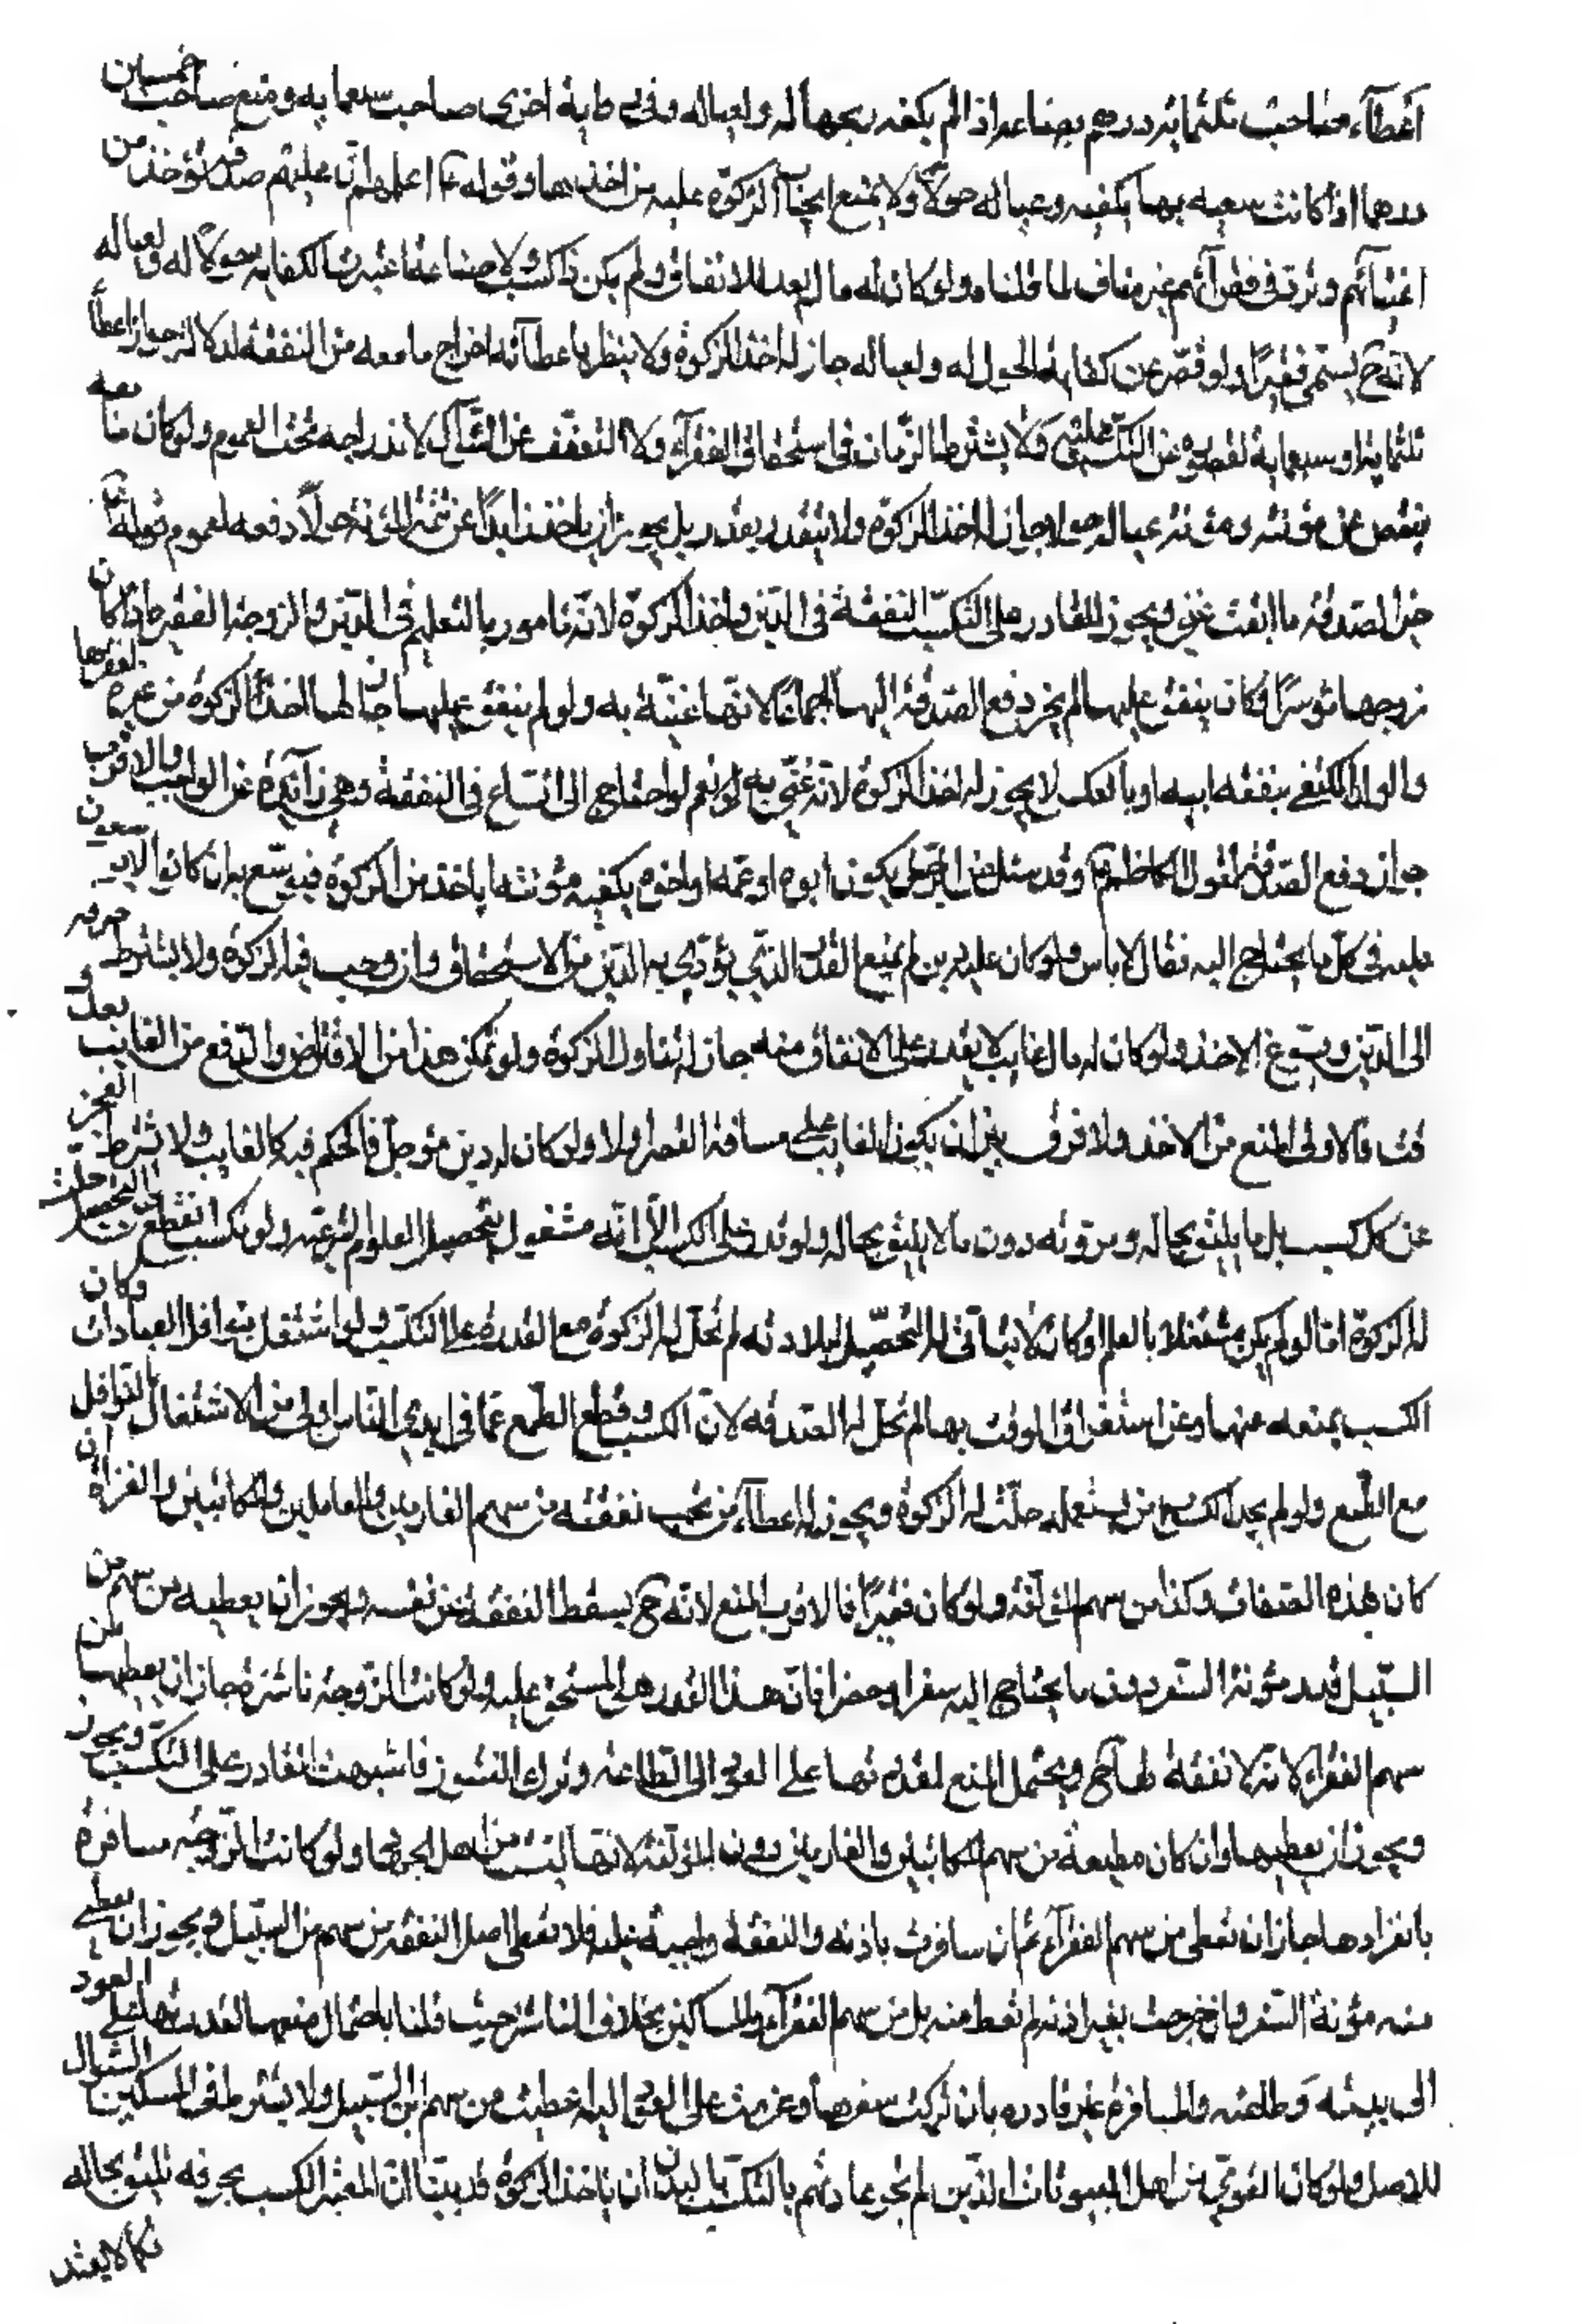 اعطاء صاحب ثلثمائة درهم بضاعة اذا لم يكفه ربحها له ولعياله وفي رواية اخرى صاحب سبعماية ومنع صاحب خمسين
درهما اذا كانت سعيه بها يكفيه وعياله حولا ولا يمنع ايجاب الزكوة عليه من اخذها وقوله ع اعلمهم ان عليهم صدقة تؤخذ من
اغنيائهم وترد في فقرائهم غير مناف لما قلناه ولو كان له مال يعد للانفاق ولم يكن ذا كسب ولا صناعة اعتبرنا الكفاية حولا له ولعياله
لانه ح يسمى فقيرا ولو قصر عن كفايه الحول له ولعياله جاز له اخذ الزكوة ولا ينظر باعطائه اخراج ما معه من النفقة لدلالة جواز اعطاء
ثلثماية او سبعماية لقصوره عن التكسب عليه ولا يشترط الزمانة في استحقاق الفقراء ولا التعفف عن السؤال لاندراجه تحت العموم ولو كان ما معه
ينقص عن مؤنته ومؤنة عياله حولا جاز له اخذ الزكوة ولا يتقدر بقدر بل يجوز ان ياخذ زايدا عن تتمة المؤنة حولا دفعه لعموم قوله ع
خير الصدقة ما ابقت غنى ويجوز للقادر على التكسب التفقه في الدين واخذ الزكوة لانه مامور بالتعلم في الدين والزوجة الفقيرة اذا كان
زوجها مؤسرا وكان ينفق عليها لم يجز دفع الصدقة اليها اجماعا لانها غنية به ولو لم ينفق عليها جاز لها اخذ الزكوة من غيره لفقرها
والولد المكتفي بنفقة ابيه او بالعكس لا يجوز له اخذ الزكوة لانه غني به نعم لو احتاج الى اتساع في النفقة وهي زائدة عن الواجب والاقرب
جواز دفع الصدقة لقول الكاظم ع وقد سئل عن الرجل يكون ابوه او عمه او اخوه يكفيه مؤنته اياخذ من الزكوة فيوسع به ان كانوا لا يوسعون
عليه في كل ما يحتاج اليه فقال لا باس ولو كان عليه دين لم يمنع القدر الذي يؤدي به الدين من الاستحقاق وان وجب فيه الزكوة ولا يشترط صرفه
الى الدين ويسوغ الاخذ ولو كان له مال غايب لا يقدر على الانفاق منه جاز له تناول الزكوة ولو تمكن هذا من الاقتراض والدفع من الغايب بعد و
قت فالاولى المنع من الاخذ ولا فرق بين ان يكون الغايب على مسافة القصر او لا ولو كان له دين مؤجل فالحكم فيه كالغايب ولا يشترط العجز
عن كل كسب بل ما يليق بحاله ومروته دون ما لا يليق بحاله ولو قدر على الكسب الا انه مشغول بتحصيل العلوم الشرعية ولو تكسب انقطع عن التحصيل حلت
له الزكوة اما لو لم يكن مشتغلا بالعلم او كان لا يتاتى له التحصيل لبلادته لم تحل له الزكوة مع القدرة على التكسب ولو اشتغل بنوافل العبادات وكان
الكسب يمنعه عنها وعن استغراق الوقت بها لم تحل له الصدقة لان الكسب وقطع الطمع عما في ايدي الناس اولى من الاشتغال بالنوافل
مع الطمع ولو لم يجد الكسوب من يستعمله حلت له الزكوة ويجوز له اعطاء من تجب نفقته من سهم الغارمين والعاملين والمكاتبين والغزاة ان
كان بهذه الصفات وكذا من سهم المؤلفة ولو كان فقيرا فالاقرب المنع لانه ح يسقط النفقة عن نفسه ويجوز ان يعطيه من سهم من
السبيل قدر مؤنة السفر دون ما يحتاج اليه سفرا وحضرا فان هذا القدر هو المستحق عليه ولو كانت الزوجة ناشزة جاز ان يعطيها من
سهم الفقراء لانه لا نفقة لها ح ويحتمل المنع لقدرتها على العود الى الطاعة وترك النشوز فاشبهت القادر على التكسب ويجوز
ويجوز ان يعطيها وان كان مطيعة من سهم المكاتبين والغارمين دون المؤلفة لانها ليست من اهل الجهاد ولو كانت الزوجة مسافرة
بانفرادها جاز ان تعطى من سهم الفقراء ثم ان سافرت باذنه والنفقة واجبة عليه فلا تعطى اصل النفقة من سهم من السبيل ويجوز ان تعطى
منه مؤنة السفر وان خرجت بغير اذنه لم تعط منه بل من سهم الفقراء والمساكين بخلاف الناشز حيث قلنا باحتمال منعها لقدرتها على العود
الى بيته وطاعته والمسافرة غير قادرة بان تركت سفرها وعزمت على العود اليه اعطيت من سهم ابن السبيل ولا يشترط في المسكين السؤال
للاصل ولو كان القوي من اهل البيوتات الذين لم تجر عادتهم بالتكسب بالبدن ان ياخذ الزكوة قد بينا ان المعتبر الكسب بحرفة تليق بحاله
فكما لا يعتد